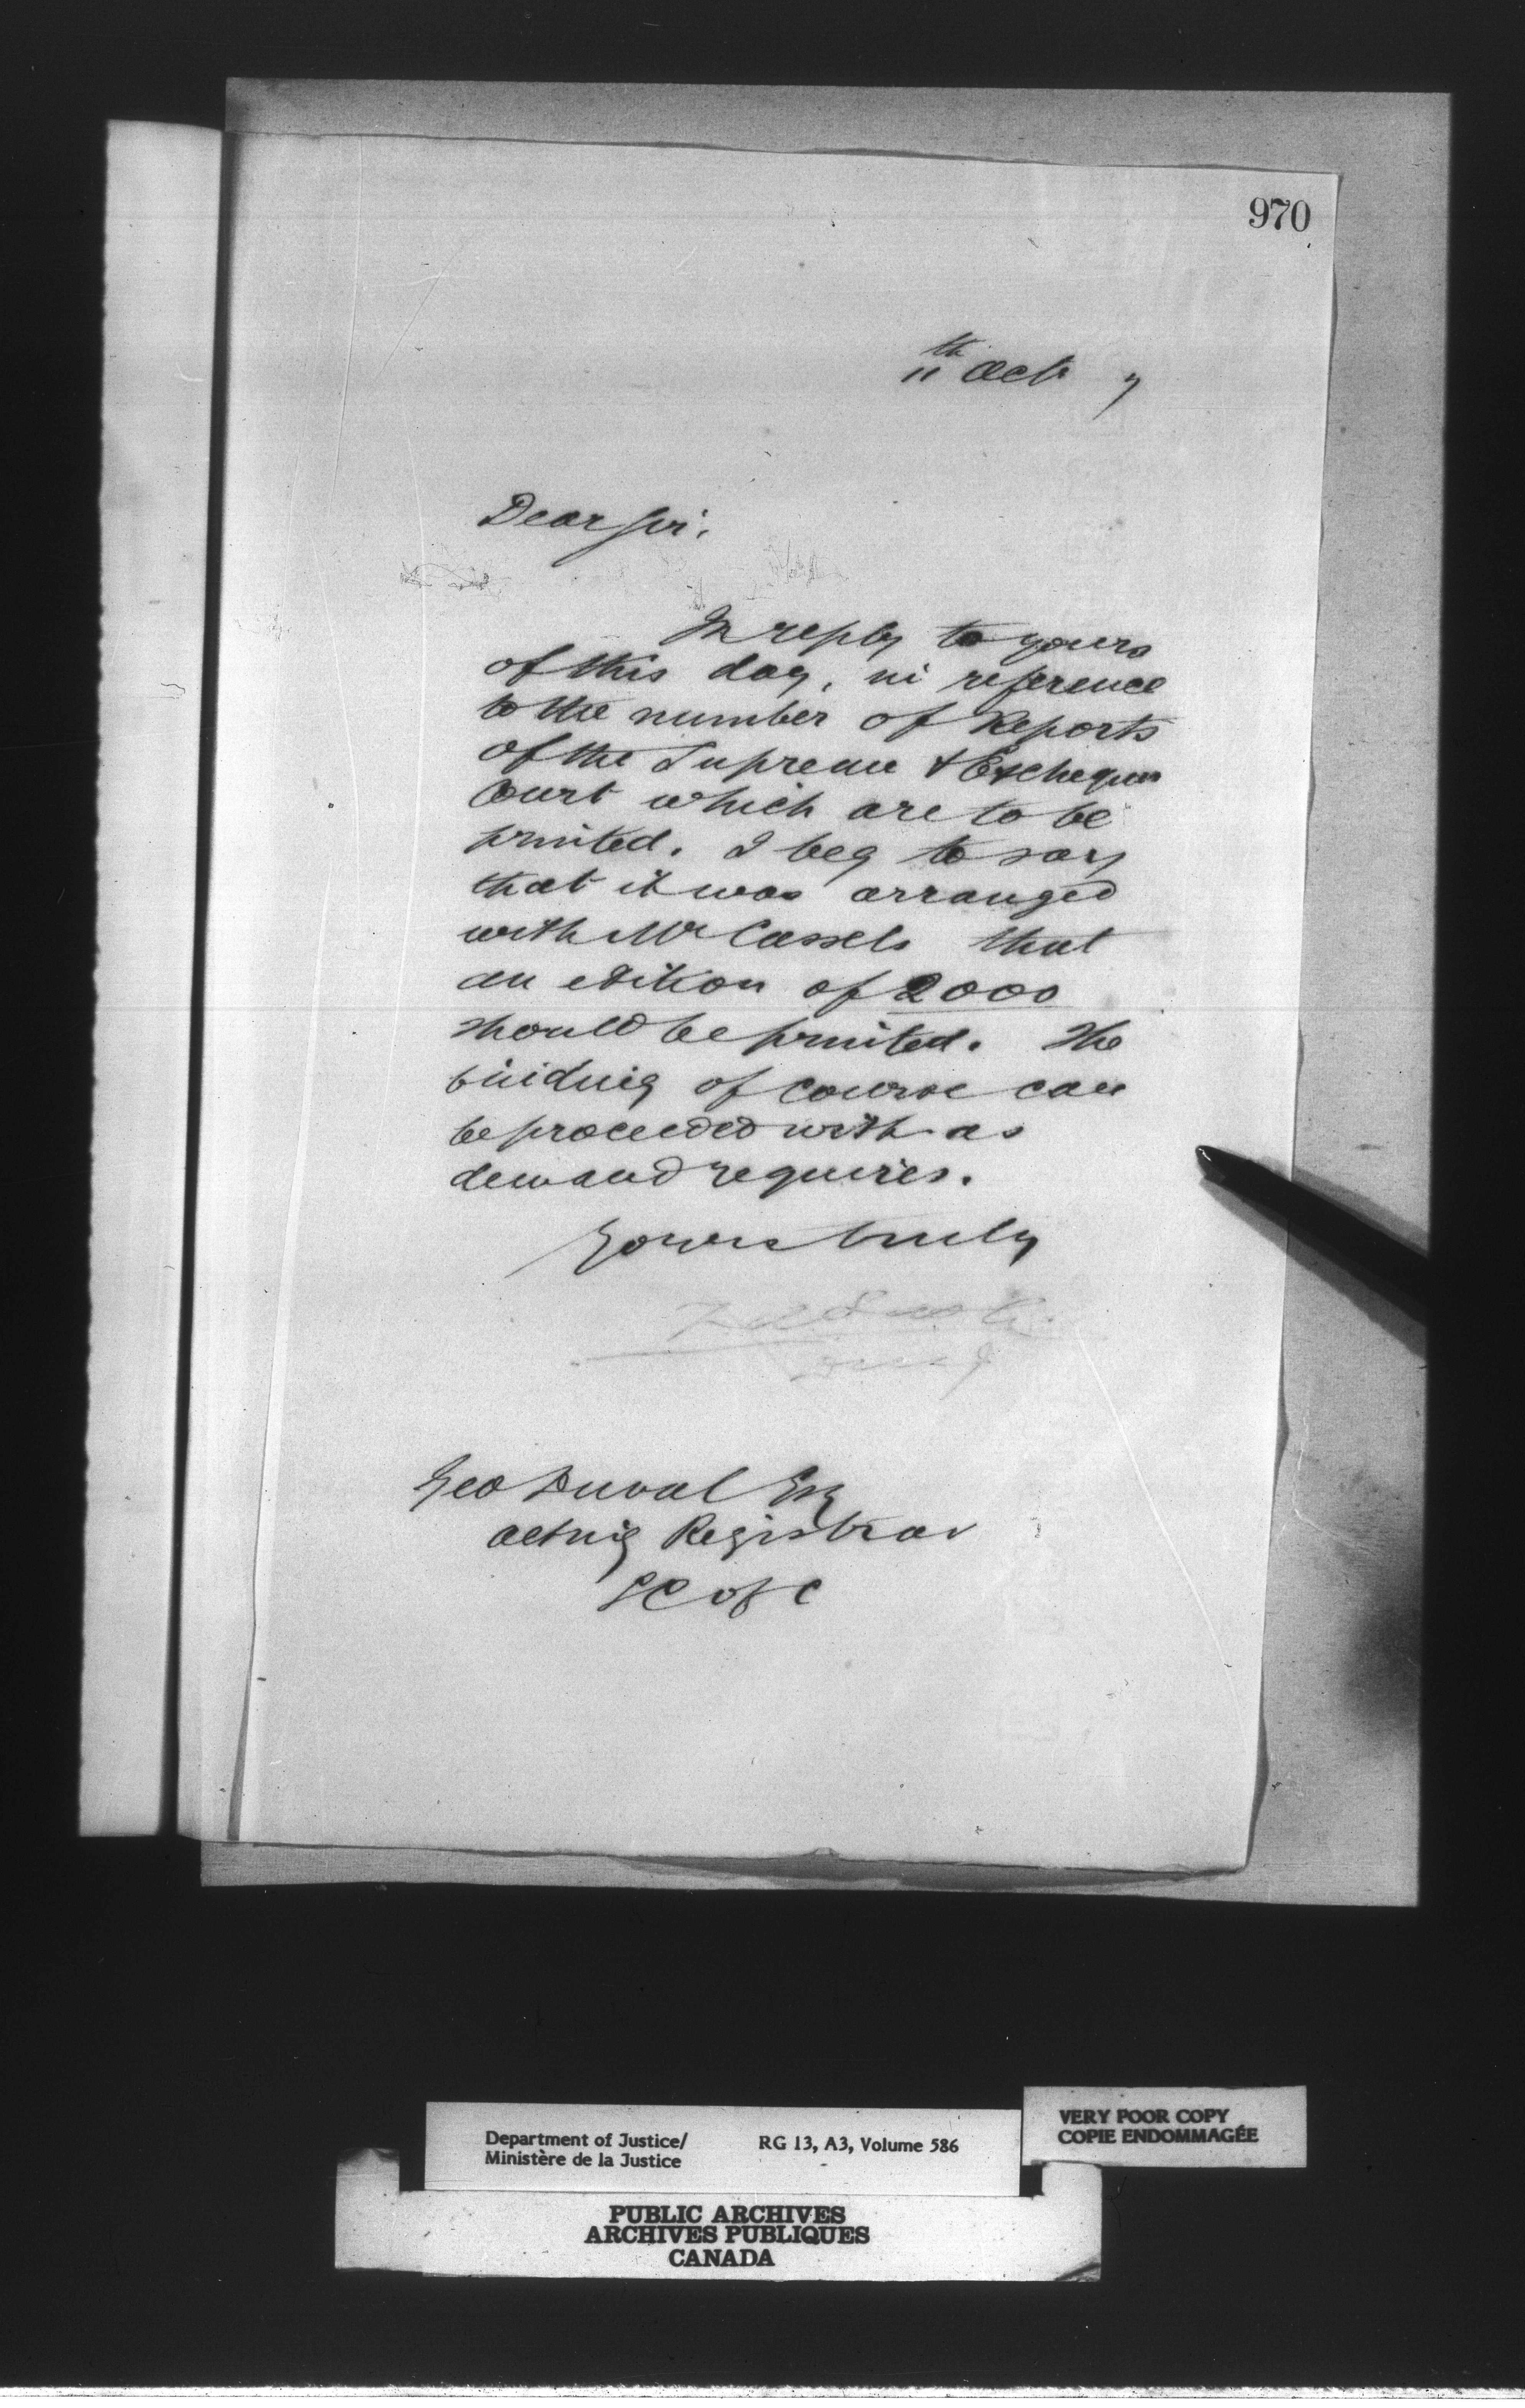 970
11th Octr 7
Dear Sir,
In reply to yours
of this day, in reference
to the number of Reports
of the Supreme & Exchequer
Court which are to be
printed. I beg to say
that it was arranged
with Mr Cassels that
an edition of 2000
should be printed. The
binding of course can
be proceeded with as
demand requires.
Yours truly
Geo Duval Esq
acting Registrar
S C of C
Department of Justice/
Ministère de la Justice
RG 13, A3, Volume 586
VERY POOR COPY
COPIE ENDOMMAGÉE
PUBLIC ARCHIVES
ARCHIVES PUBLIQUES
CANADA